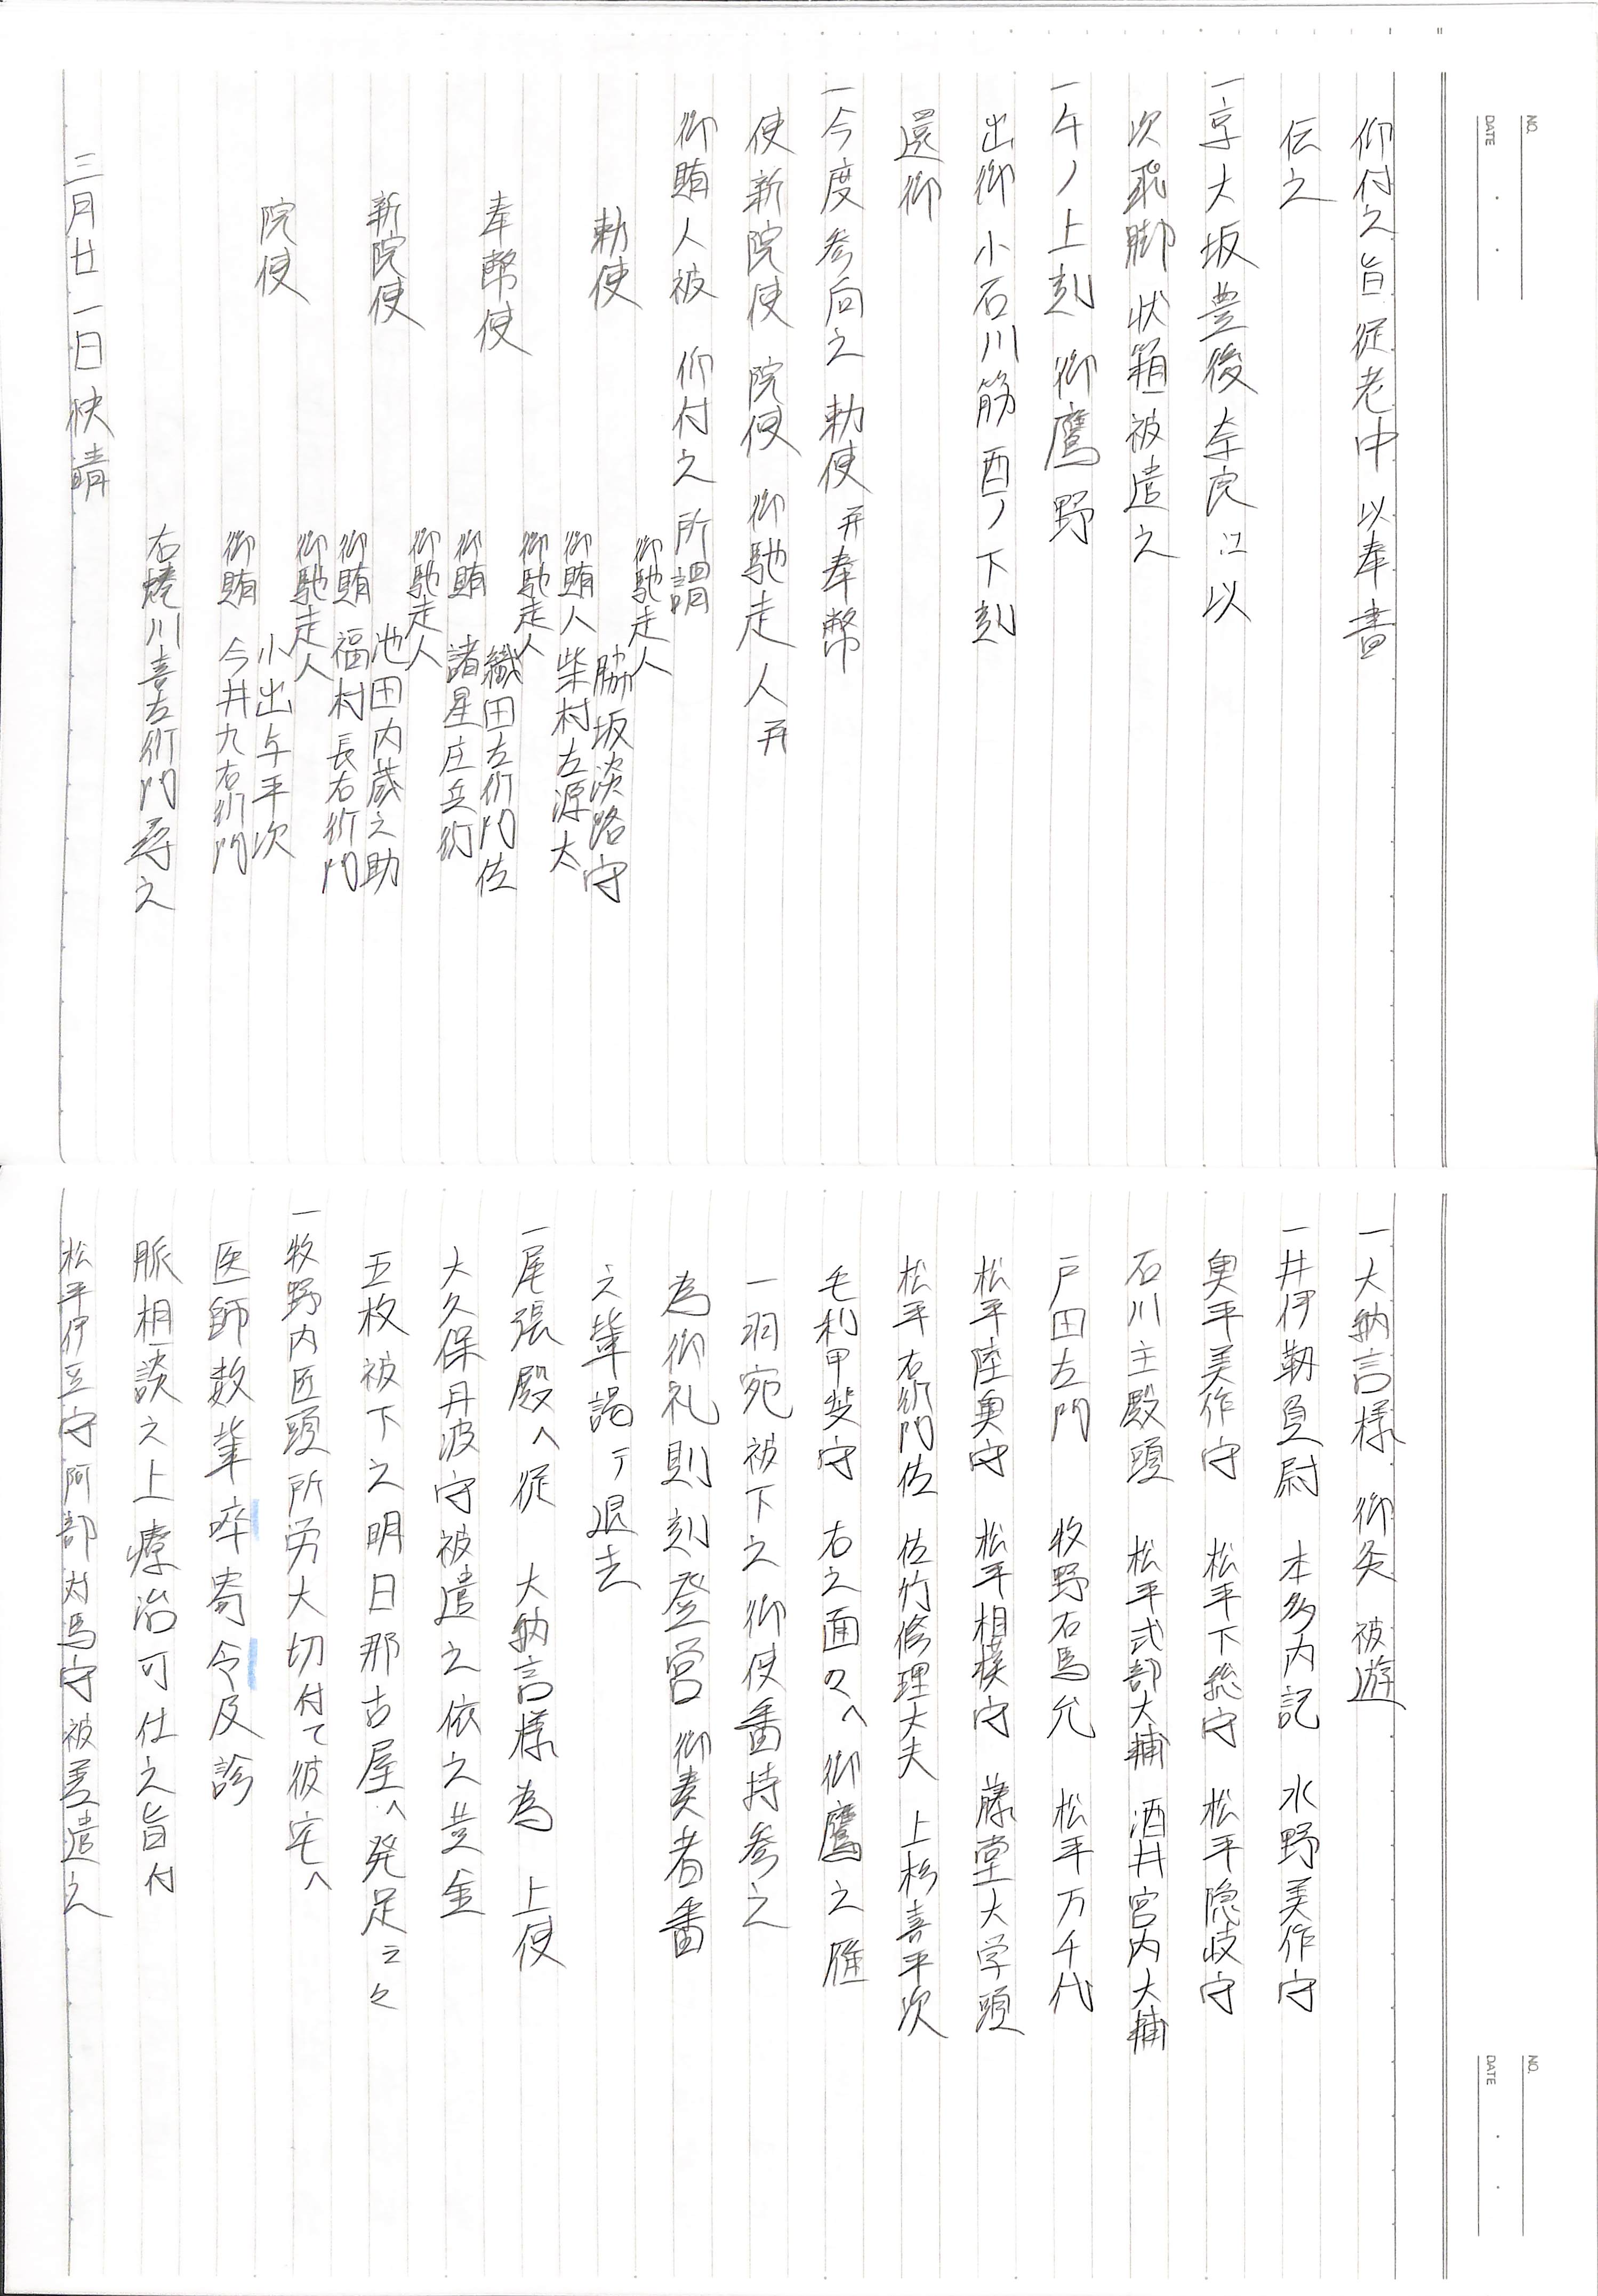 NO.
DATE
仰付之旨従老中以奉書
伝之
一京大坂豊後奈良江以
次飛脚状箱被遣之
一午ノ上刻 御鷹野
出御小石川筋酉ノ下刻
還御
一今度参向之勅使并奉幣
使新院使院使御馳走人并
御賄人被 仰付之所謂
勅使
御馳走人 脇坂淡路守
御賄人 柴村左源太
奉幣使
御馳走人 織田左衛門佐
御賄 諸星庄兵衛
新院使
御馳走人 池田内蔵之助
御賄 福村長右衛門
院使
御馳走人 小出与平次
御賄 今井九右衛門
右蜷川喜左衛門尋之
三月廿一日快晴
NO.
DATE
一大納言様 御灸 被遊
一井伊靱負尉 本多内記 水野美作守
奥平美作守 松平下総守 松平隠岐守
石川主殿頭 松平式部大輔 酒井宮内大輔
戸田左門 牧野右馬允 松平万千代
松平陸奥守 松平相模守 藤堂大学頭
松平右衛門佐 佐竹修理大夫 上杉喜平次
毛利甲斐守 右之面々へ御鷹之雁
一羽宛被下之御使番持参之
為御礼則刻登営御奏者番
之輩謁了退去
一尾張殿へ従 大納言様為 上使
大久保丹波守被遣之依之黄金
五枚被下之明日那古屋へ発足云々
一牧野内匠頭所労大切付て彼宅へ
医師数輩卒寄令及診
脈相談之上療治可仕之旨付
松平伊豆守阿部対馬守被差遣之